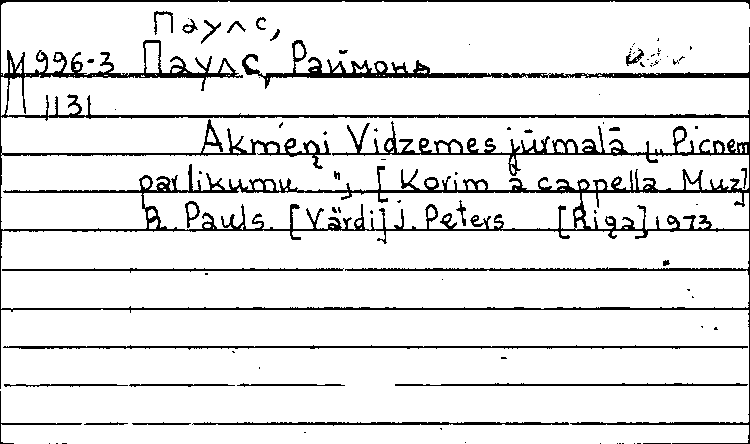 Паулс,
М 996-3 Паулс, Раймонд
1131
Akmeņi Vidzemes jūrmalā [„Picnem
par likumu "]. [Korim a cappella. Muz]
R. Pauls. [Vārdi] J. Peters. [Riga] 1973.